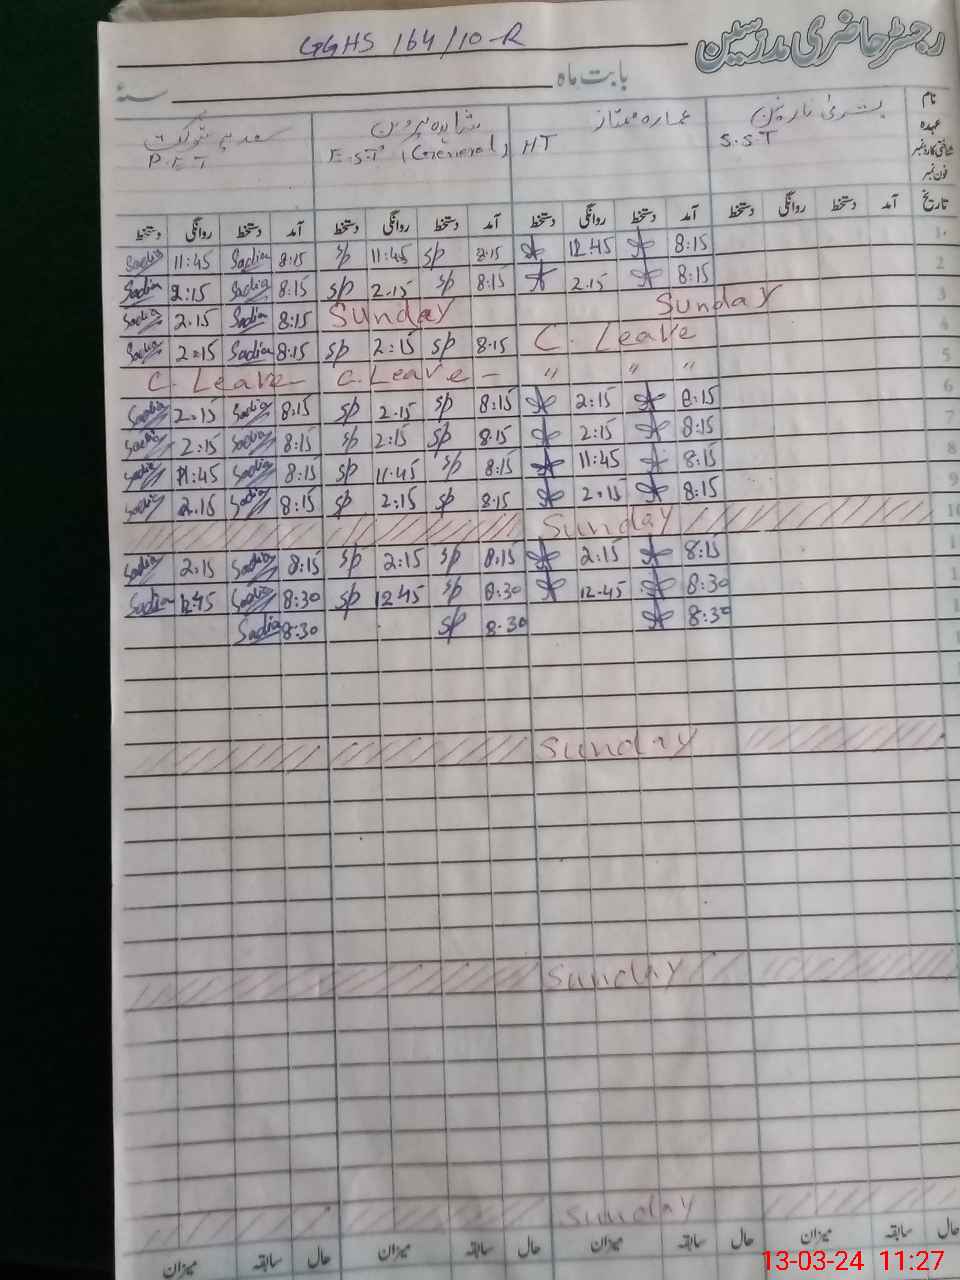 رجسٹر حاضری مدرسین
GGHS 164/10-R
بابت ماہ سنہ
نام بشریٰ نازنین عمارہ ممتاز شاہدہ پروین سعدیہ شوکت
عہدہ S.S.T HT E.S.T (General) P.E.T
شناختی کارڈ نمبر
فون نمبر
تاریخ آمد دستخط روانگی دستخط آمد دستخط روانگی دستخط آمد دستخط روانگی دستخط آمد دستخط روانگی دستخط
Sadia 11:45 Sadia 8:15 sp 11:45 sp 8:15 12.45 8:15
Sadia 2:15 Sadia 8:15 sp 2.15 sp 8:15 2.15 8:15 2
Sadia 2.15 Sadia 8:15 Sunday Sunday 3
Sadia 2:15 Sadia 8:15 sp 2:15 sp 8.15 C. Leave 4
C. Leave - C. Leave - " " " 5
Sadia 2:15 Sadia 8:15 sp 2.15 sp 8:15 2:15 8:15 6
Sadia 2:15 Sadia 8:15 sp 2:15 sp 8.15 2:15 8:15 7
Sadia 11:45 Sadia 8:15 sp 11:45 sp 8:15 11:45 8:15 8
Sadia 2.15 Sadia 8:15 sp 2:15 sp 8.15 2.15 8:15 9
Sunday 10
Sadia 2:15 Sadia 8:15 sp 2:15 sp 8:15 2:15 8:15
Sadia 12:45 Sadia 8:30 sp 12.45 sp 8:30 12.45 8:30
Sadia 8:30 sp 8.30 8:30
Sunday
Sunday
Sunday
حال سابقہ میزان حال سابقہ میزان حال سابقہ میزان حال سابقہ میزان
13-03-24 11:27